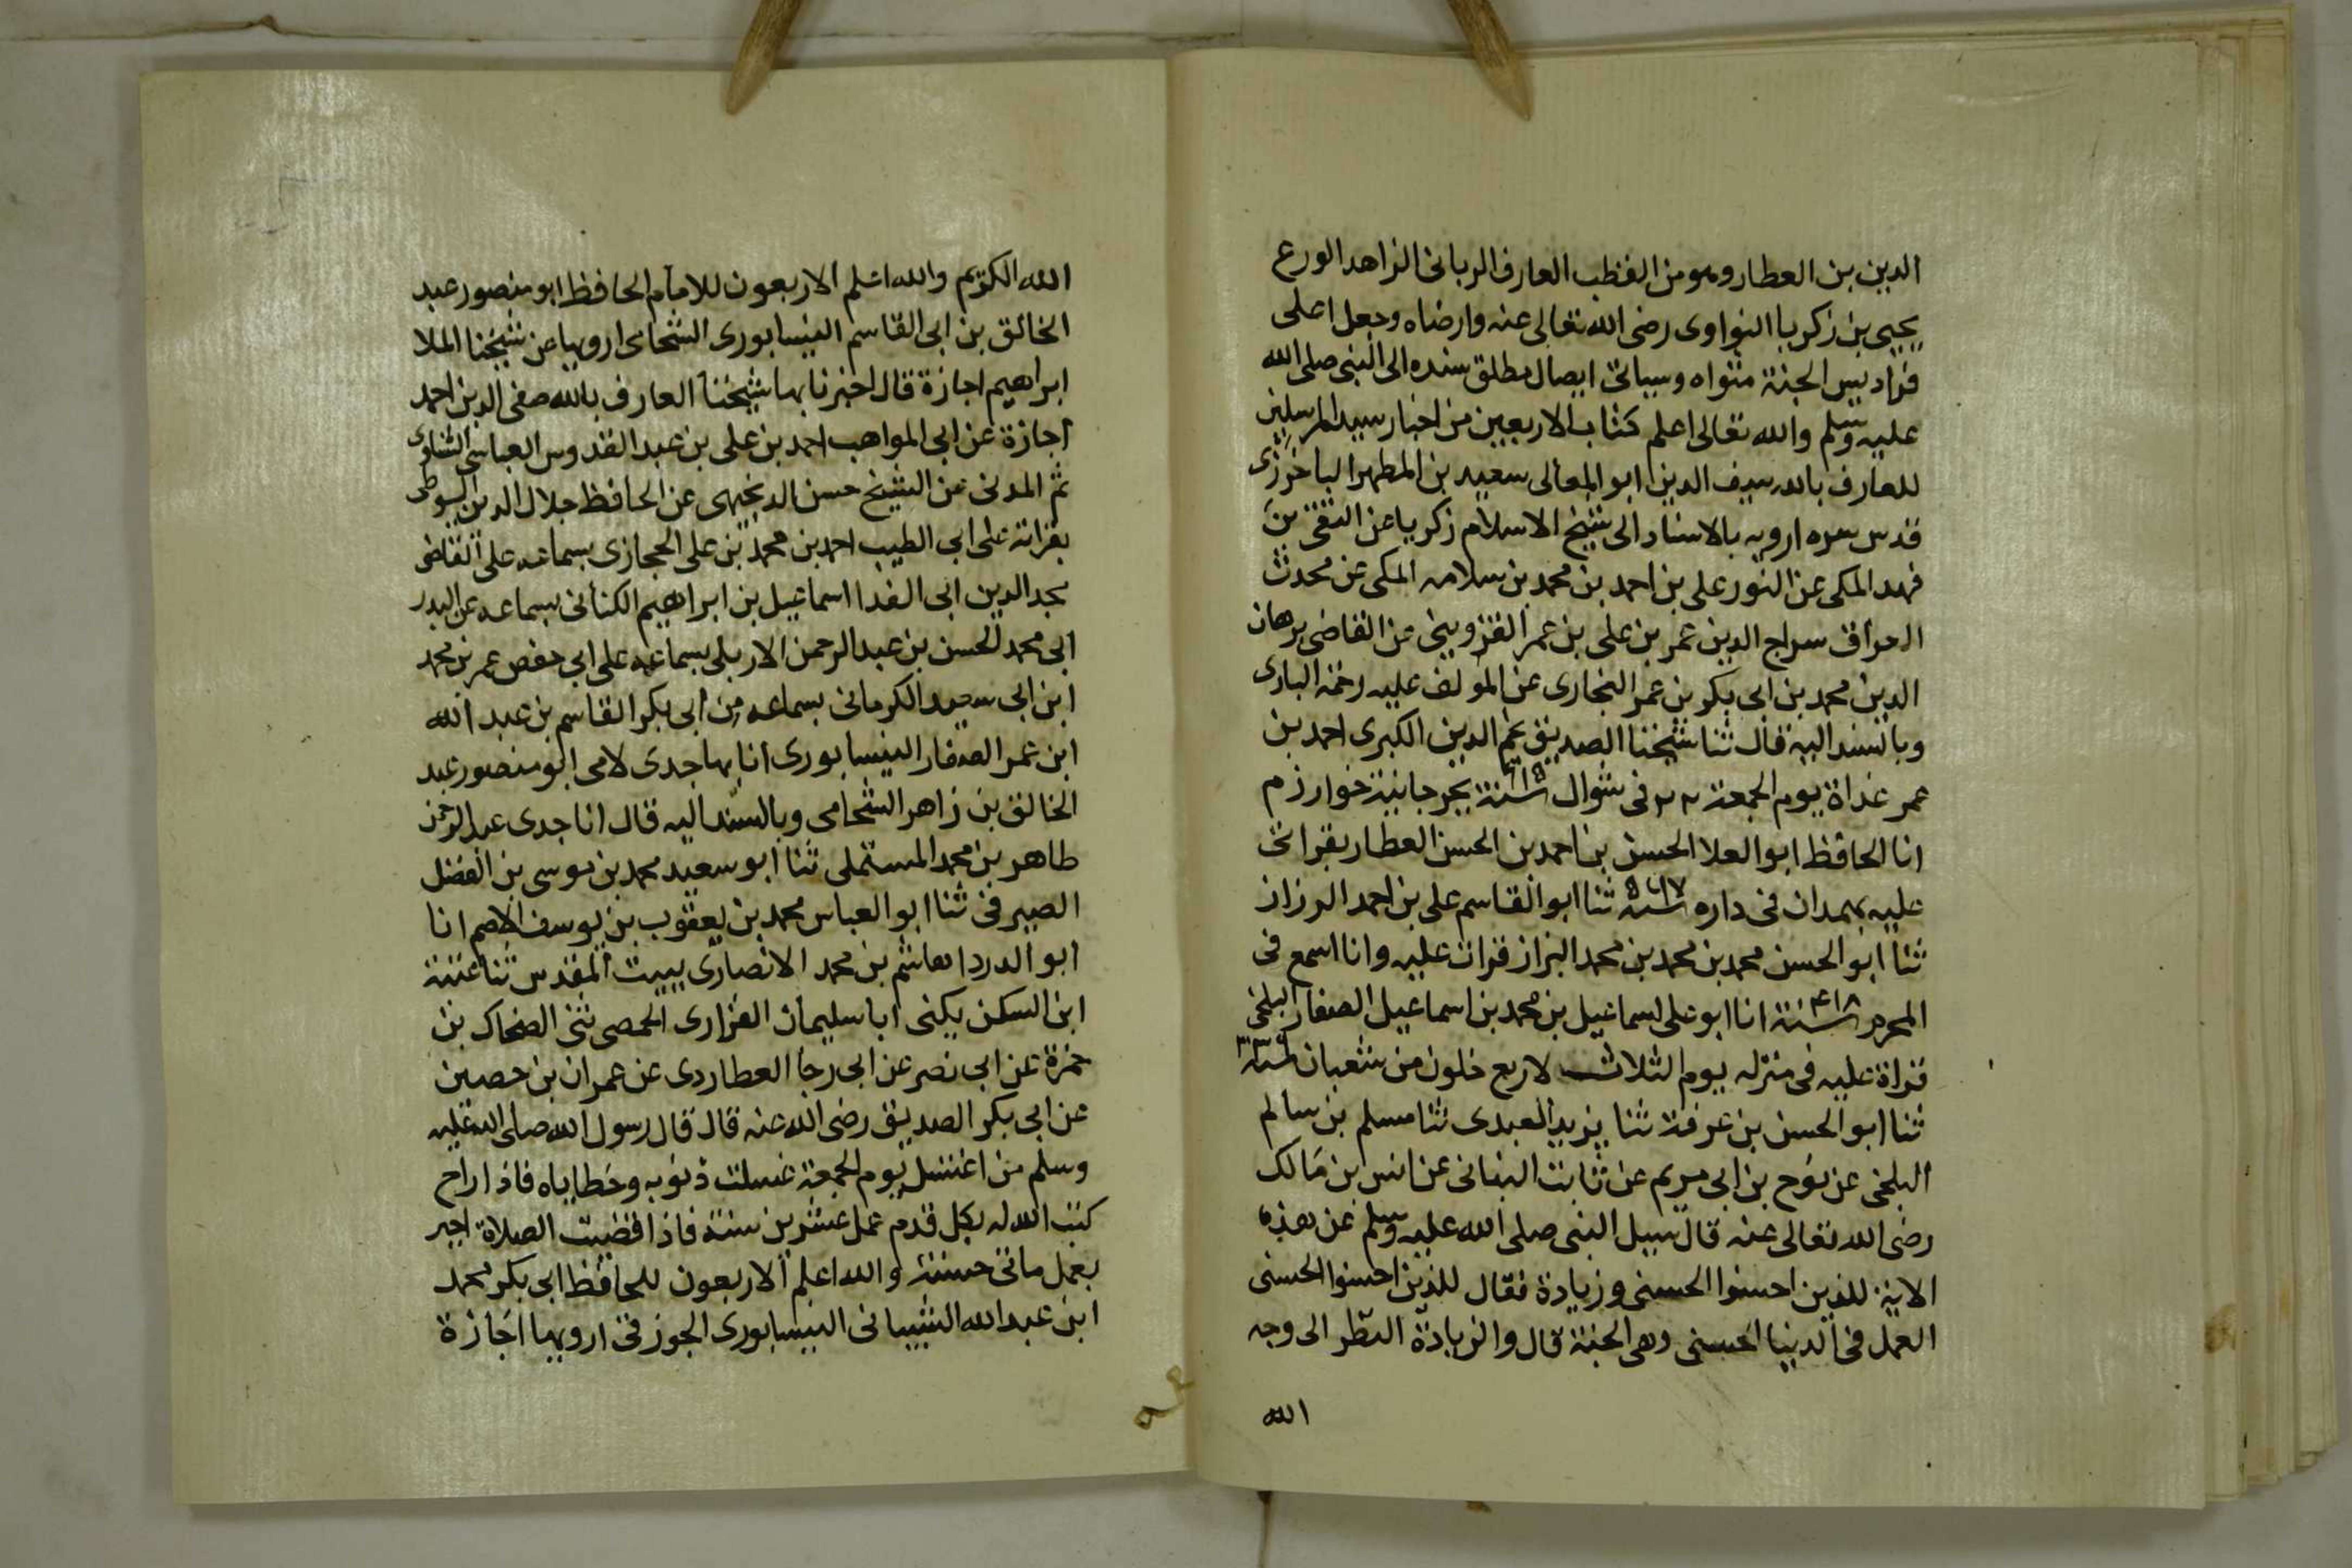 الدين بن العطار وهو من القطب العارف الربانى الزاهد الورع
يحيى بن زكريا النواوى رضى الله تعالى عنه وارضاه وجعل اعلى
فراديس الجنة مثواه وسياتى ايصال مطلق سنده الى النبى صلى الله
عليه وسلم والله تعالى اعلم كتاب الاربعين من اخبار سيد المرسلين
للعارف بالله سيف الدين ابو المعالى سعيد بن المطهر الباخرزى
قدس سره ارويه بالاسناد الى شيخ الاسلام زكريا عن التقى بن
فهد المكى عن النور على بن احمد بن محمد بن سلامه المكى عن محدث
العراق سراج الدين عمر بن على بن عمر القزوينى عن القاضى برهان
الدين محمد بن ابى بكر بن عمر البخارى عن المولف عليه رحمة البارى
وبالسند اليه قال ثنا شيخنا الصديق نجم الدين الكبرى احمد بن
عمر غداة يوم الجمعة ٢٢ فى شوال سنة ٦١٥ بجرجانية خوارزم
انا الحافظ ابو العلا الحسن بن احمد بن الحسن العطار بقراتى
عليه بهمدان فى داره سنة ٥٦٧ ثنا ابو القاسم على بن احمد الرزاز
ثنا ابو الحسن محمد بن محمد بن محمد البزاز قرات عليه وانا اسمع فى
المحرم سنة ٤١٨ انا ابو على اسماعيل بن محمد بن اسماعيل الصفار البلخى
قراة عليه فى منزله يوم الثلاث لاربع خلون من شعبان سنة
ثنا ابو الحسن بن عرفة ثنا يزيد العبدى ثنا مسلم بن سالم
البلخى عن نوح بن ابى مريم عن ثابت البنانى عن انس بن مالك
رضى الله تعالى عنه قال سيل النبى صلى الله عليه وسلم عن هذه
الاية للذين احسنوا الحسنى وزيادة فقال للذين احسنوا الحسنى
العمل فى الدنيا الحسنى وهى الجنة قال والزيادة النظر الى وجه
الله
الله الكريم والله اعلم الاربعون للامام الحافظ ابو منصور عبد
الخالق بن ابى القاسم النيسابورى الشحامى ارويها عن شيخنا الملا
ابراهيم اجازة قال اخبرنا بها شيخنا العارف بالله صفى الدين احمد
اجازة عن ابى المواهب احمد بن على بن عبد القدوس العباسى الشناوى
ثم المدنى عن الشيخ حسن الدنجيهى عن الحافظ جلال الدين السيوطى
بقراته على ابى الطيب احمد بن محمد بن على الحجازى بسماعه على القاضى
مجد الدين ابى الفدا اسماعيل بن ابراهيم الكنانى بسماعه عن البدر
ابى محمد الحسن بن عبد الرحمن الاربلى بسماعه على ابى حفص عمر بن محمد
ابن ابى سعيد الكرمانى بسماعه من ابى بكر القاسم بن عبد الله
ابن عمر الصفار النيسابورى انا بها جدى لامى ابو منصور عبد
الخالق بن زاهر الشحامى وبالسند اليه قال انا جدى عبد الرحمن
طاهر بن محمد المستملى ثنا ابو سعيد محمد بن موسى بن الفضل
الصيرفى ثنا ابو العباس محمد بن يعقوب بن يوسف الاصم انا
ابو الدردا هاشم بن محمد الانصارى ببيت المقدس ثنا عتبة
ابن السكن يكنى ابا سليمان الفزارى الحمصى ثنى الضحاك بن
حمزة عن ابى نصر عن ابى رجا العطاردى عن عمران بن حصين
عن ابى بكر الصديق رضى الله عنه قال قال رسول الله صلى الله عليه
وسلم من اغتسل يوم الجمعة غسلت ذنوبه وخطاياه فاذا راح
كتب الله له بكل قدم عمل عشرين سنة فاذا قضيت الصلاة اجير
بعمل ماتى حسنة والله اعلم الاربعون للحافظ ابى بكر محمد
ابن عبد الله الشيبانى النيسابورى الجوزقى ارويها اجازة